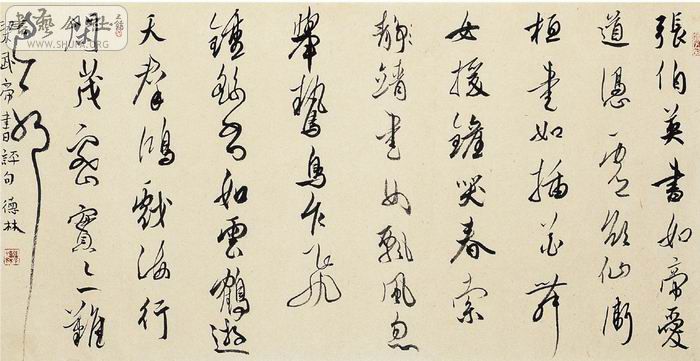 張伯英書如帝愛
道憑虛欲仙衛
恒書如插花舞
女援鏡笑春索
靖書如飄風忽
舉鷙鳥乍飛
鍾繇書如雲鶴遊
天群鴻戲海行
間茂密實亦難
梁武帝書評句 德林